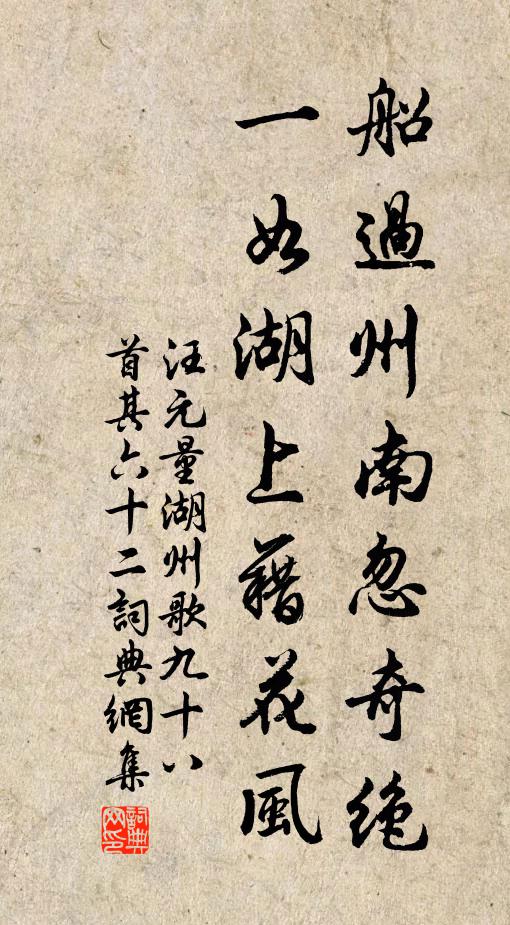 船過州南忽奇絶
一如湖上藉花風
汪元量湖州歌九十八
首其六十二詞典網集
詞典
网印